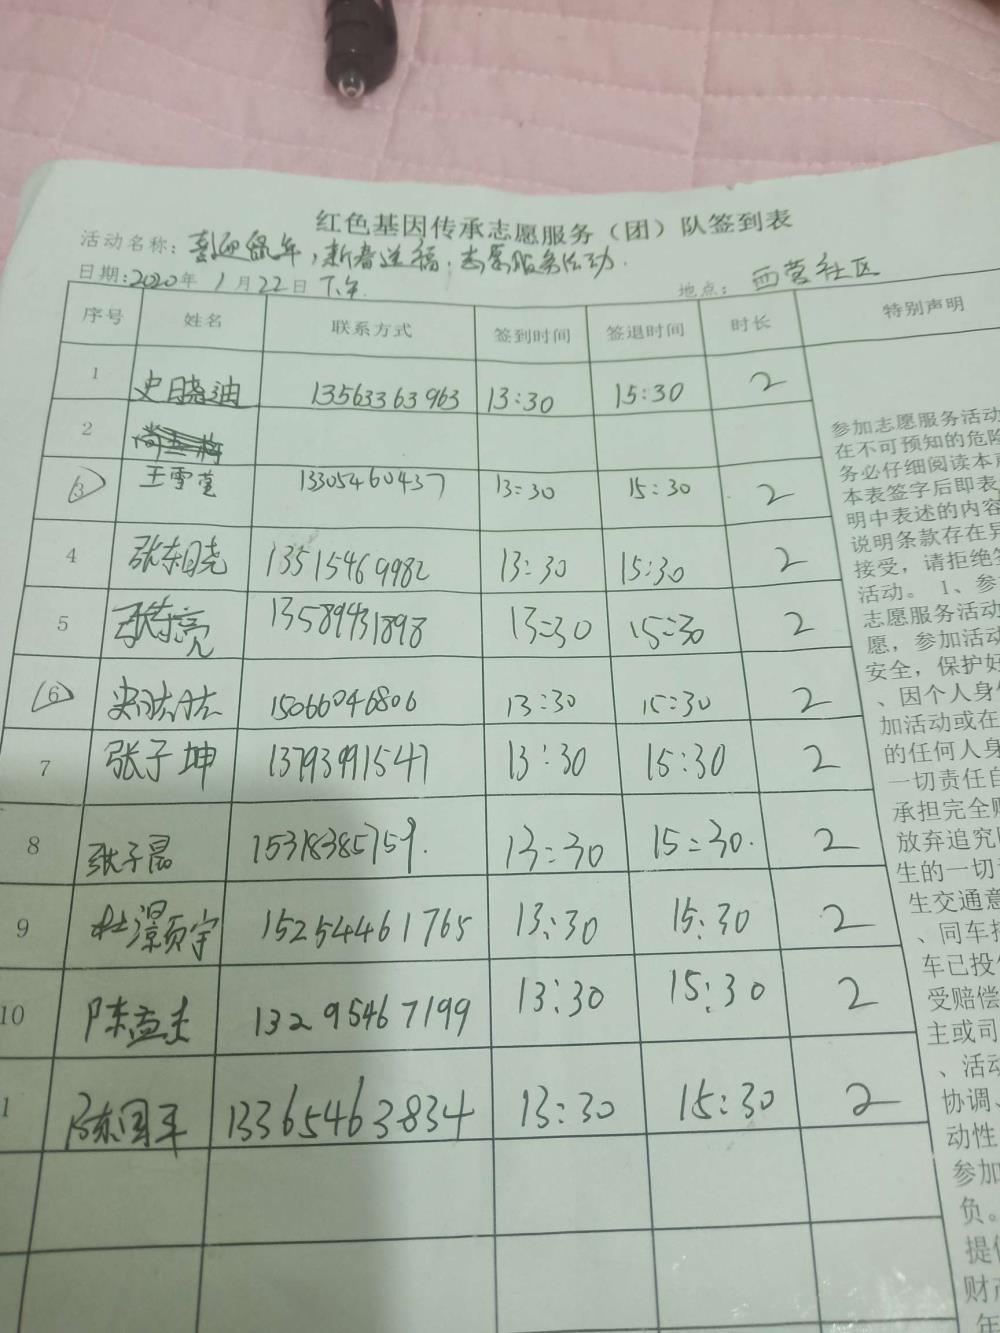 红色基因传承志愿服务（团）队签到表
活动名称：喜迎鼠年，新春送福，志愿服务活动.
日期:2020年 1月22日 下午.
地点： 西营社区
序号 姓名 联系方式 签到时间 签退时间 时长 特别声明
1 史晓迪 13563363963 13:30 15:30 2
2
3 王雪莹 13305460437 13:30 15:30 2
4 张东晓 13515469982 13:30 15:30 2
5 张东亮 13589431898 13:30 15:30 2
6 15066046806 13:30 15:30 2
7 张子坤 13793991547 13:30 15:30 2
8 张子晶 15318385759. 13:30 15:30. 2
9 杜灏颖宇 15254461765 13:30 15:30 2
10 陈孟圭 13295467199 13:30 15:30 2
1 陈国军 13365463834 13:30 15:30 2
参加志愿服务活动
在不可预知的危险
务必仔细阅读本声
本表签字后即表
明中表述的内容
说明条款存在异
接受，请拒绝签
活动。 1、参
志愿服务活动
愿，参加活动
安全，保护好
、因个人身体
加活动或在
的任何人身
一切责任自
承担完全赔
放弃追究
生的一切
生交通意
、同车
车已投
受赔偿
主或司
、活动
协调、
动性
参加
负。
提供
财产
年